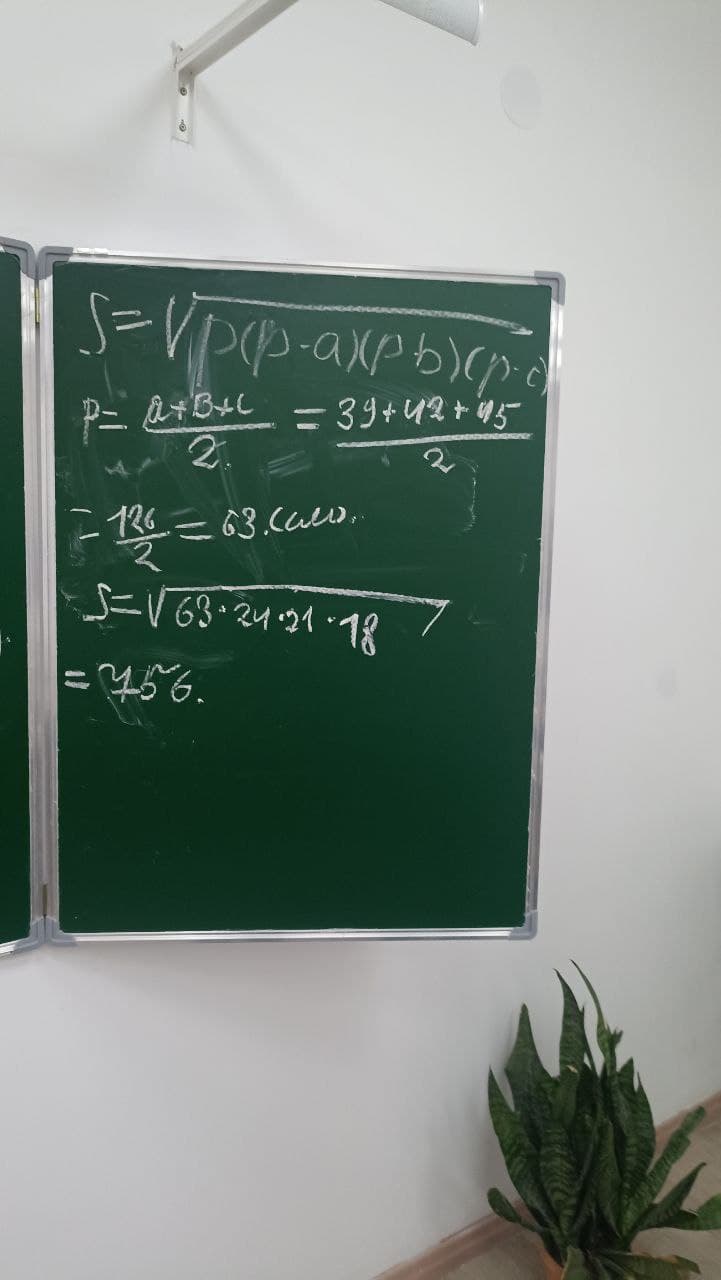 S=√p(p-a)(p b)(p-c)
P= a+B+c/2 = 39+42+45/2
= 126/2 = 63.
S=√63·24·21·18
= 756.